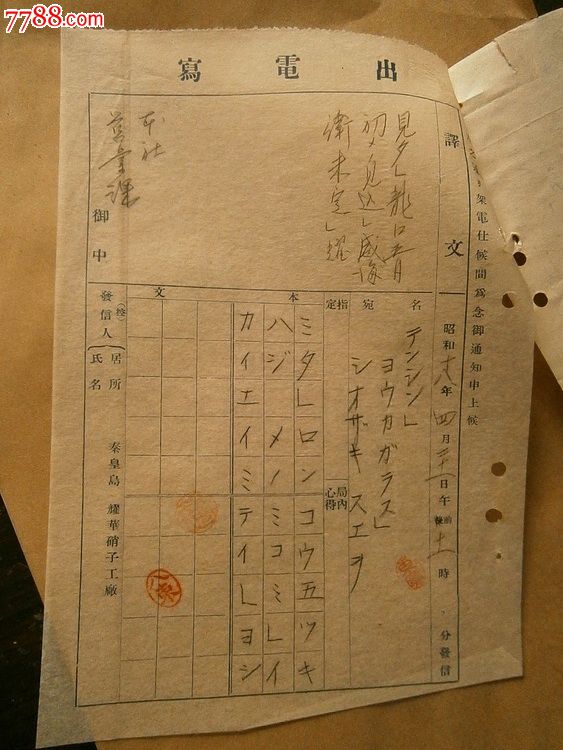 7788.com
中国收藏热线
出電寫
架電仕候間為念御通知申上候
譯文
見タ」龍口五月
初メノ見込」威海
衛未定」耀
本社
營業課
御中
昭和十八年四月二十一日午前後十一時 分發信
名宛
テンシン」
ヨウカガラス」
シオザキスエヲ
指定
局内心得
本文
ミタ」ロンコウ五ツキ
ハジメノミコミ」イ
カイエイミテイ」ヨシ
發信人(控)
居所
氏名
秦皇島 耀華硝子工廠